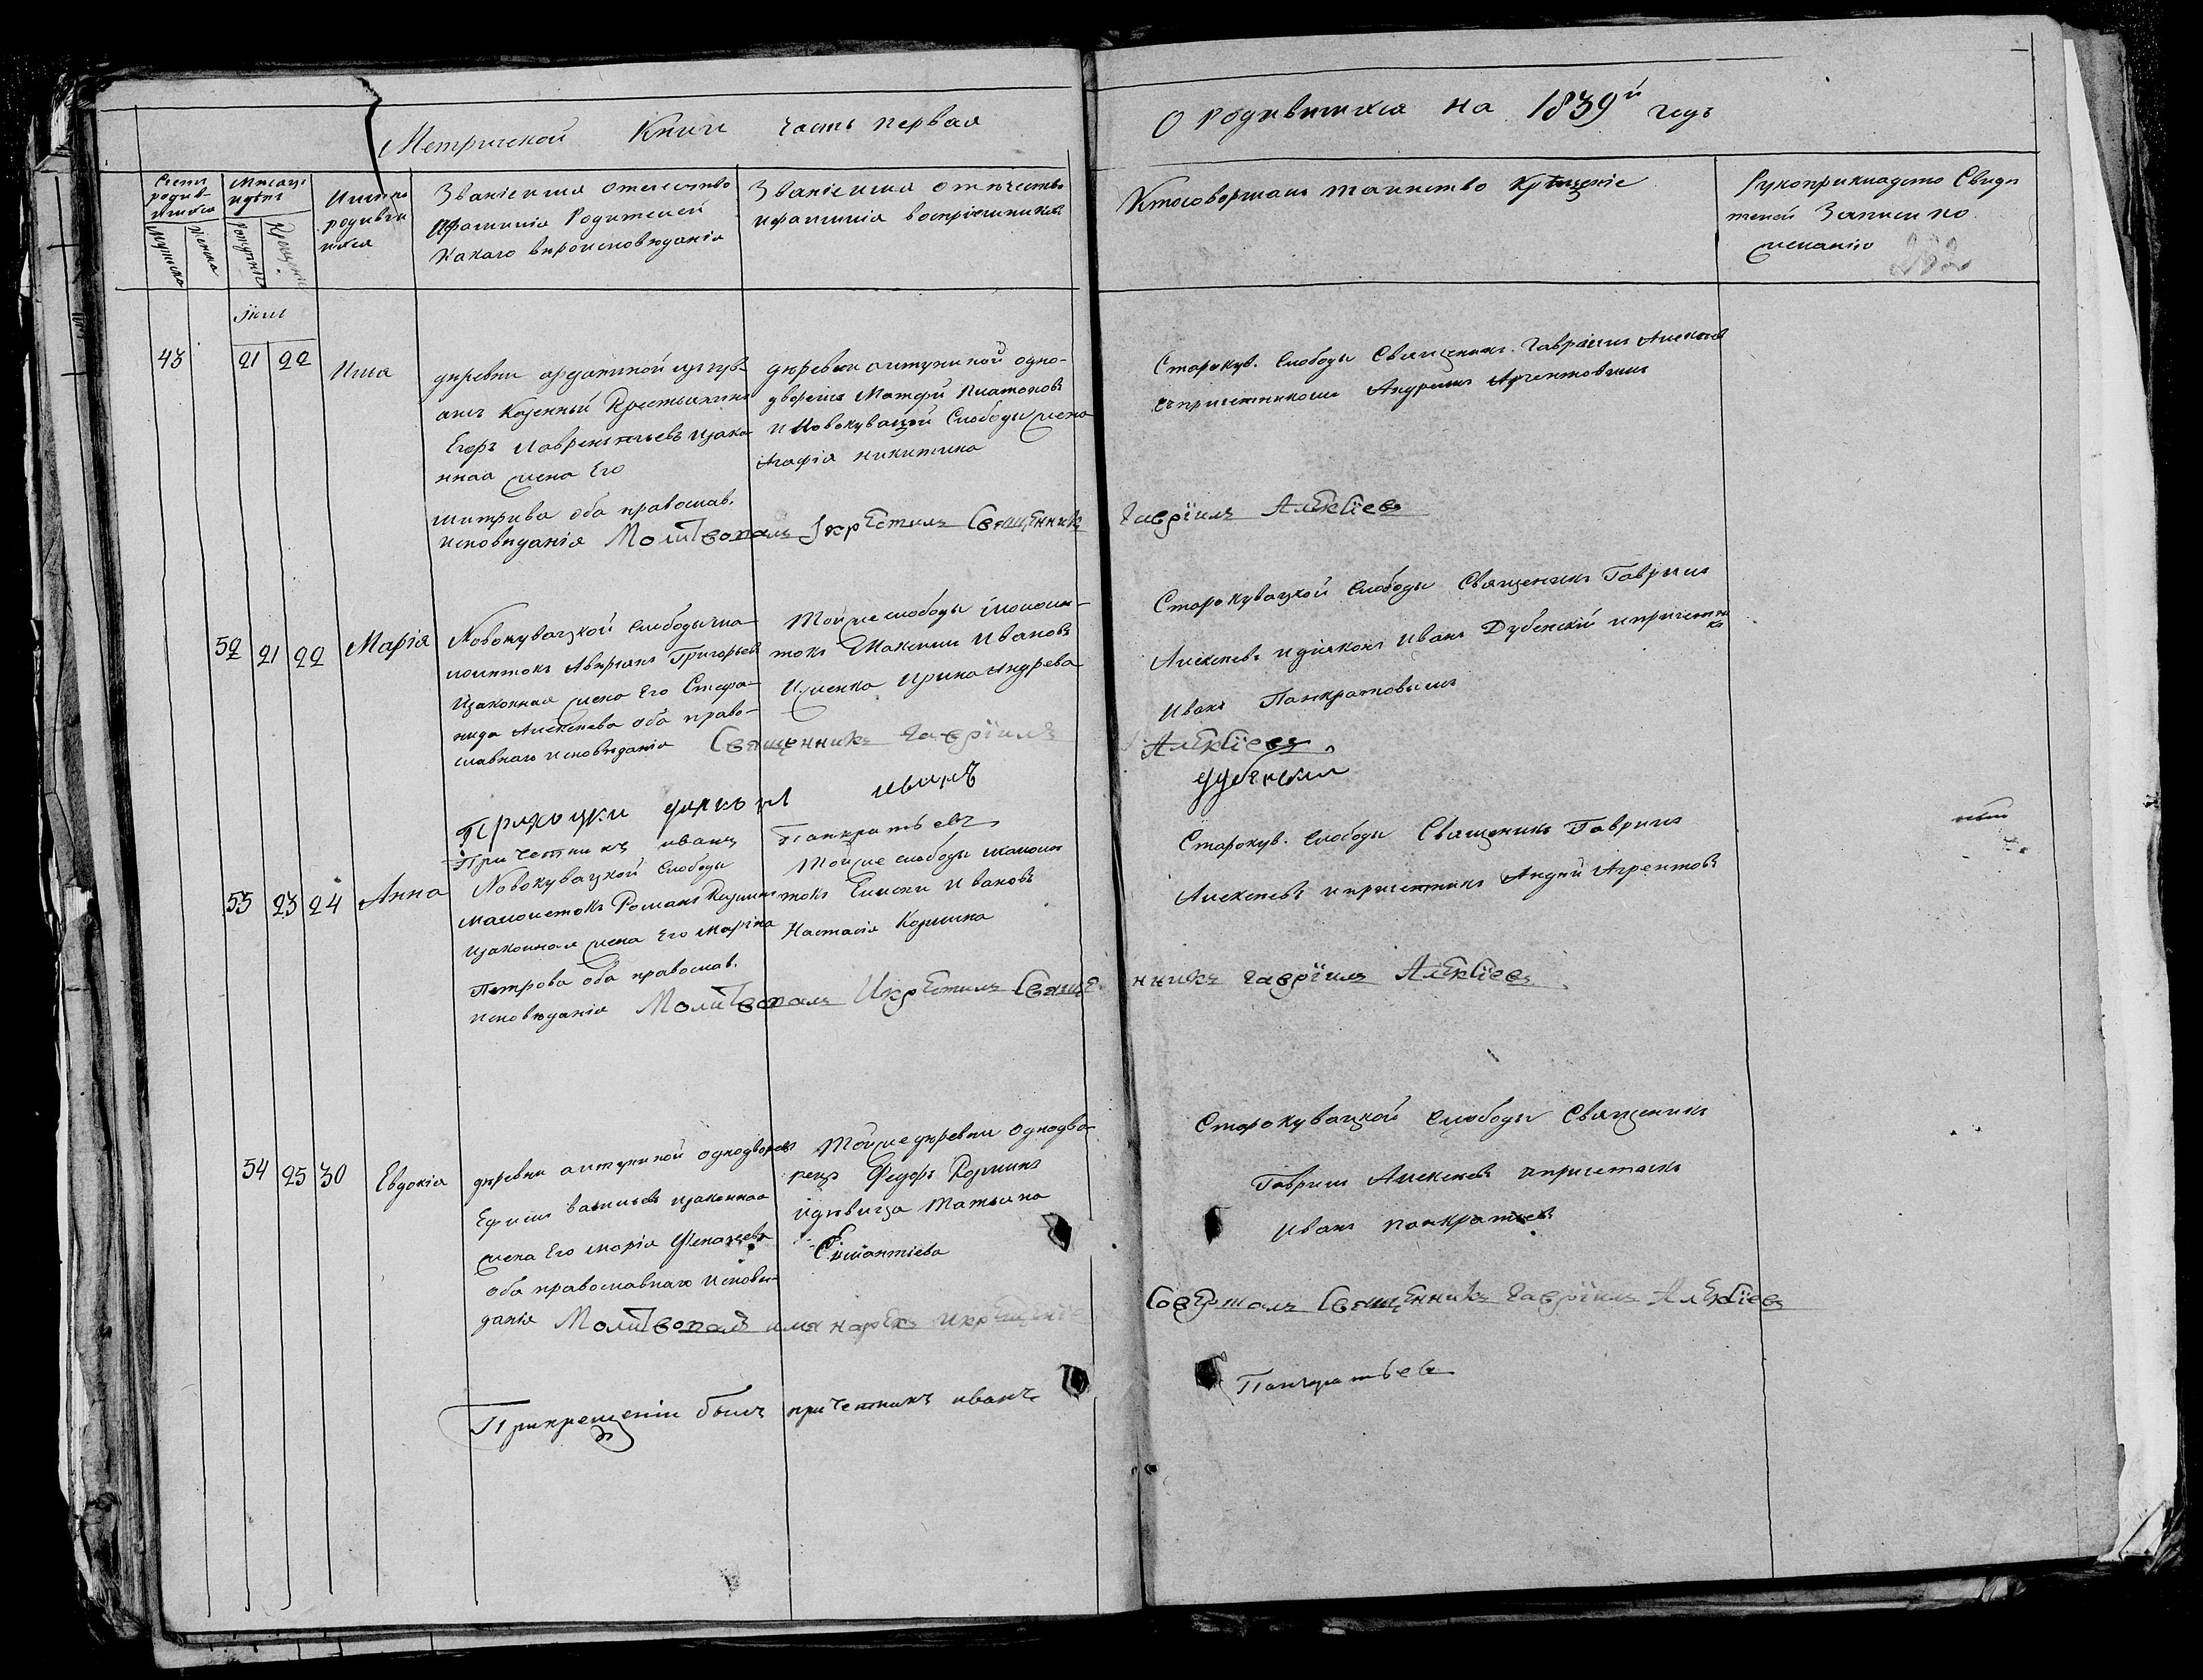 Метрической Книги часть первая
О родившихся на 1839й годъ
Счетъ родив-шихся
Мужеска
женска
Месяцъ и день
рожденiя
Крещенiя
Имена родившихся
Званiе имя отечество
и фамилiя Родителей
Какаго вероисповеданiя
Званiе имя отечество
и фамилiя воспрiемниковъ
Кто совершалъ таинство Крещенiе
Рукоприкладство Свиде
телей Записи по
желанiю
232
43
21 22
Илiа
деревни
Казенный Крестьянинъ
Егоръ Лаврентьевъ изако
нная жена Его
оба православ.
исповеданiя
деревни алтуниной одно-
дворецъ Матфей Платоновъ
и Новокувацкой Слободы жена
Агафiя никитина
Старокув. Слободы Священникъ Гаврiилъ Алексеев
съ причетникомъ Андреемъ Аргентовымъ
Молитвовалъ Iкрестилъ Священникъ Гаврiилъ Алексiевъ
52 21 22
Марiя
Новокувацкой слободы ма-
лолетокъ Аверьянъ Григорьевъ
изаконная жена Его Степа-
нида Алексеева оба право-
славнаго исповеданiя
Той же слободы малоле-
токъ Максимъ Ивановъ
И женка Ирина Андрева
Старокувацкой слободы Священикъ Гаврилъ
Алексеевъ и дiяконъ Иванъ Дубенскiй и причетни
ка
Иванъ Панкратовымъ
Священникъ Гаврiилъ Алексiевъ
дьяконъ иванъ дубенскiй
Причетникъ иванъ Панкратьевъ
53 23 24
Анна
Новокувацкой Слободы
малолетокъ Романъ Кузминъ
изаконная жена Его марiна
Петрова оба православ.
исповеданiя
Той же слободы малоле
токъ Елисей Ивановъ
Настасiя Козмина
Старокув. Слободы Священикъ Гаврилъ
Алексеевъ и причетникъ Андрей Агрентовъ
Молитвовалъ Икрестилъ Священникъ Гаврiилъ Алексiевъ
54 25 30
Евдокiя
деревни алтуниной однодворецъ
Ефимъ васильевъ изаконная
жена Его марiя
оба православнаго исповe-
данiя
Той же деревни однодво
рецъ Федоръ Кузминъ
и девица Татьяна
Старокувацкой слободы Священикъ
Гаврилъ Алексеевъ и причетникъ
Иванъ панкратьевъ
Молитвовалъ имя нарекъ икрещенiе Совершалъ Священникъ Гаврiилъ Алексiевъ
Прикрещенiи былъ причетникъ иванъ Панкратьевъ